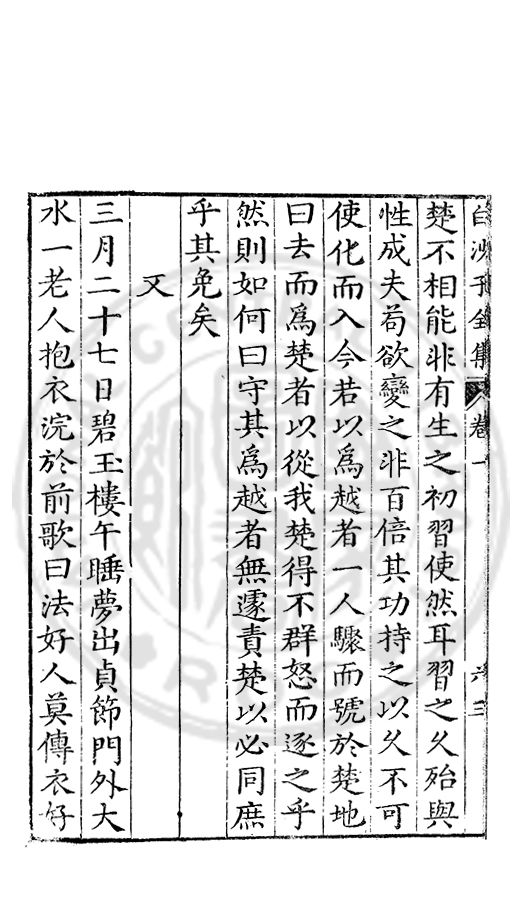 白沙子全集 卷一 六三
楚不相能非有生之初習使然耳習之久殆與
性成夫苟欲變之非百倍其功持之以久不可
使化而入今若以爲越者一人驟而號於楚地
曰去而爲楚者以從我楚得不群怒而逐之乎
然則如何曰守其爲越者無遽責楚以必同庶
乎其免矣
又
三月二十七日碧玉樓午睡夢出貞節門外大
水一老人抱衣浣於前歌曰法好人莫傳衣好